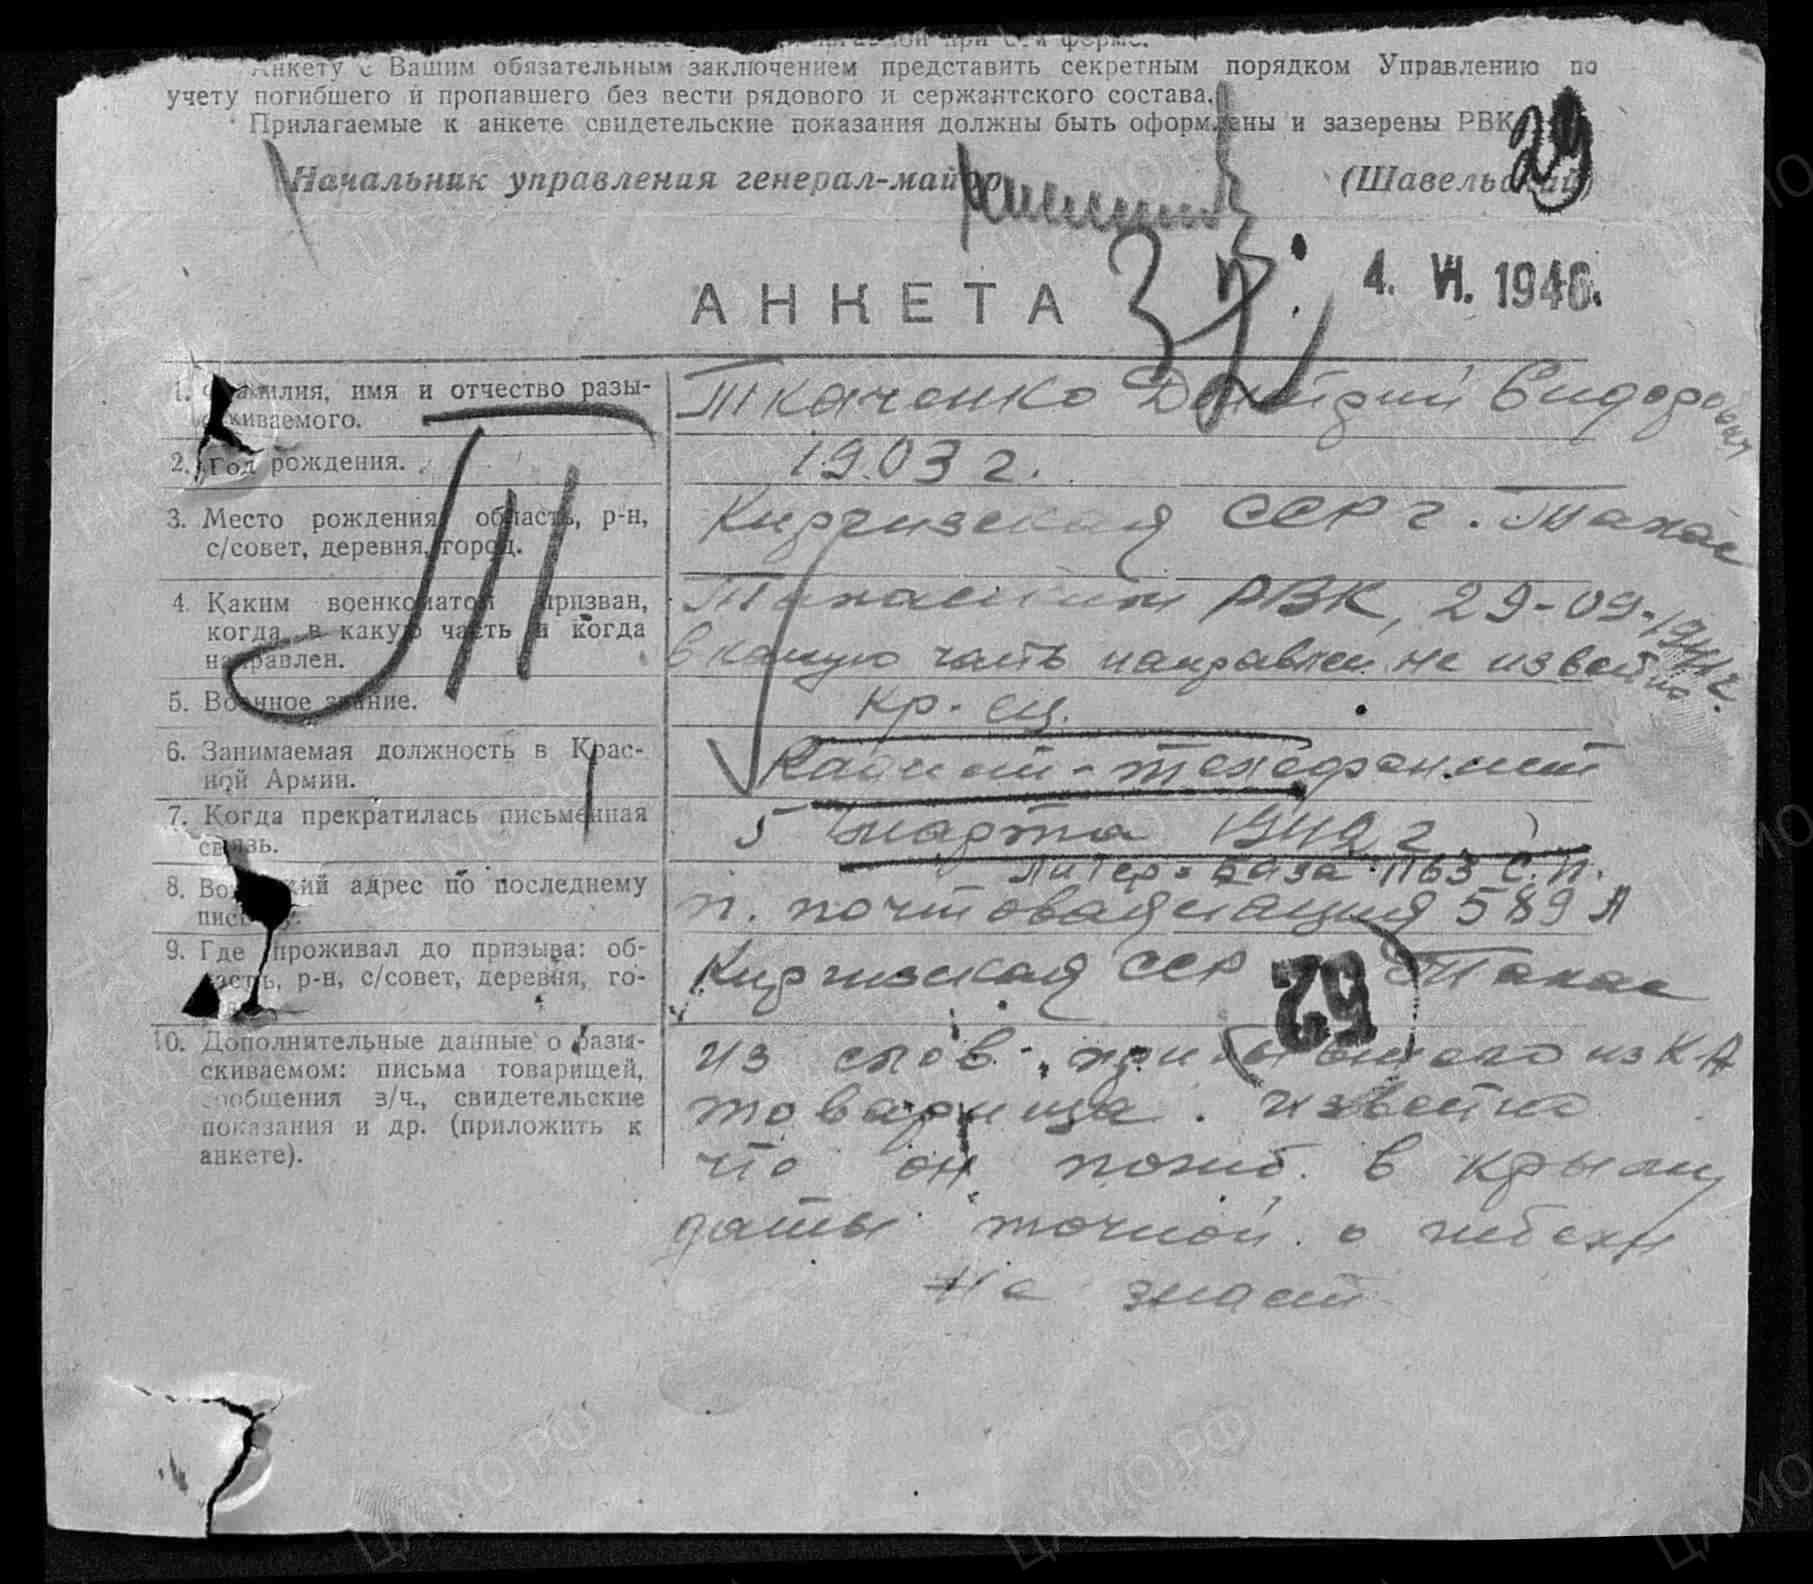 при этой форме.
Анкету с Вашим обязательным заключением представить секретным порядком Управлению по
учету погибшего и пропавшего без вести рядового и сержантского состава.
Прилагаемые к анкете свидетельские показания должны быть оформлены и заверены РВК
29
Начальник управления генерал-майор (Шавельский)
4. VI. 1946.
АНКЕТА
1. Фамилия, имя и отчество разы-
скиваемого.
Ткаченко Дмитрий Сидорович
2. Год рождения.
1903 г.
3. Место рождения, область, р-н,
с/совет, деревня, город.
Киргизская ССР г. Талас
4. Каким военкоматом призван,
когда, в какую часть и когда
направлен.
Таласским РВК, 29-09-1941 г.
в какую часть направлен не известно
5. Военное звание.
кр-ец.
6. Занимаемая должность в Крас-
ной Армии.
Радист-телефонист
7. Когда прекратилась письменная
связь.
5 марта 1942 г
8. Воинский адрес по последнему
письму.
Литер-база 1163 с.п.
п. почтовая станция 589 А
9. Где проживал до призыва: об-
ласть, р-н, с/совет, деревня, го-
Киргизская ССР Талас
52
10. Дополнительные данные о разы-
скиваемом: письма товарищей,
сообщения з/ч., свидетельские
показания и др. (приложить к
анкете).
из слов прибывшего из К А
товарища. известно
что он погиб в Крыму
даты точной о гибели
не знает